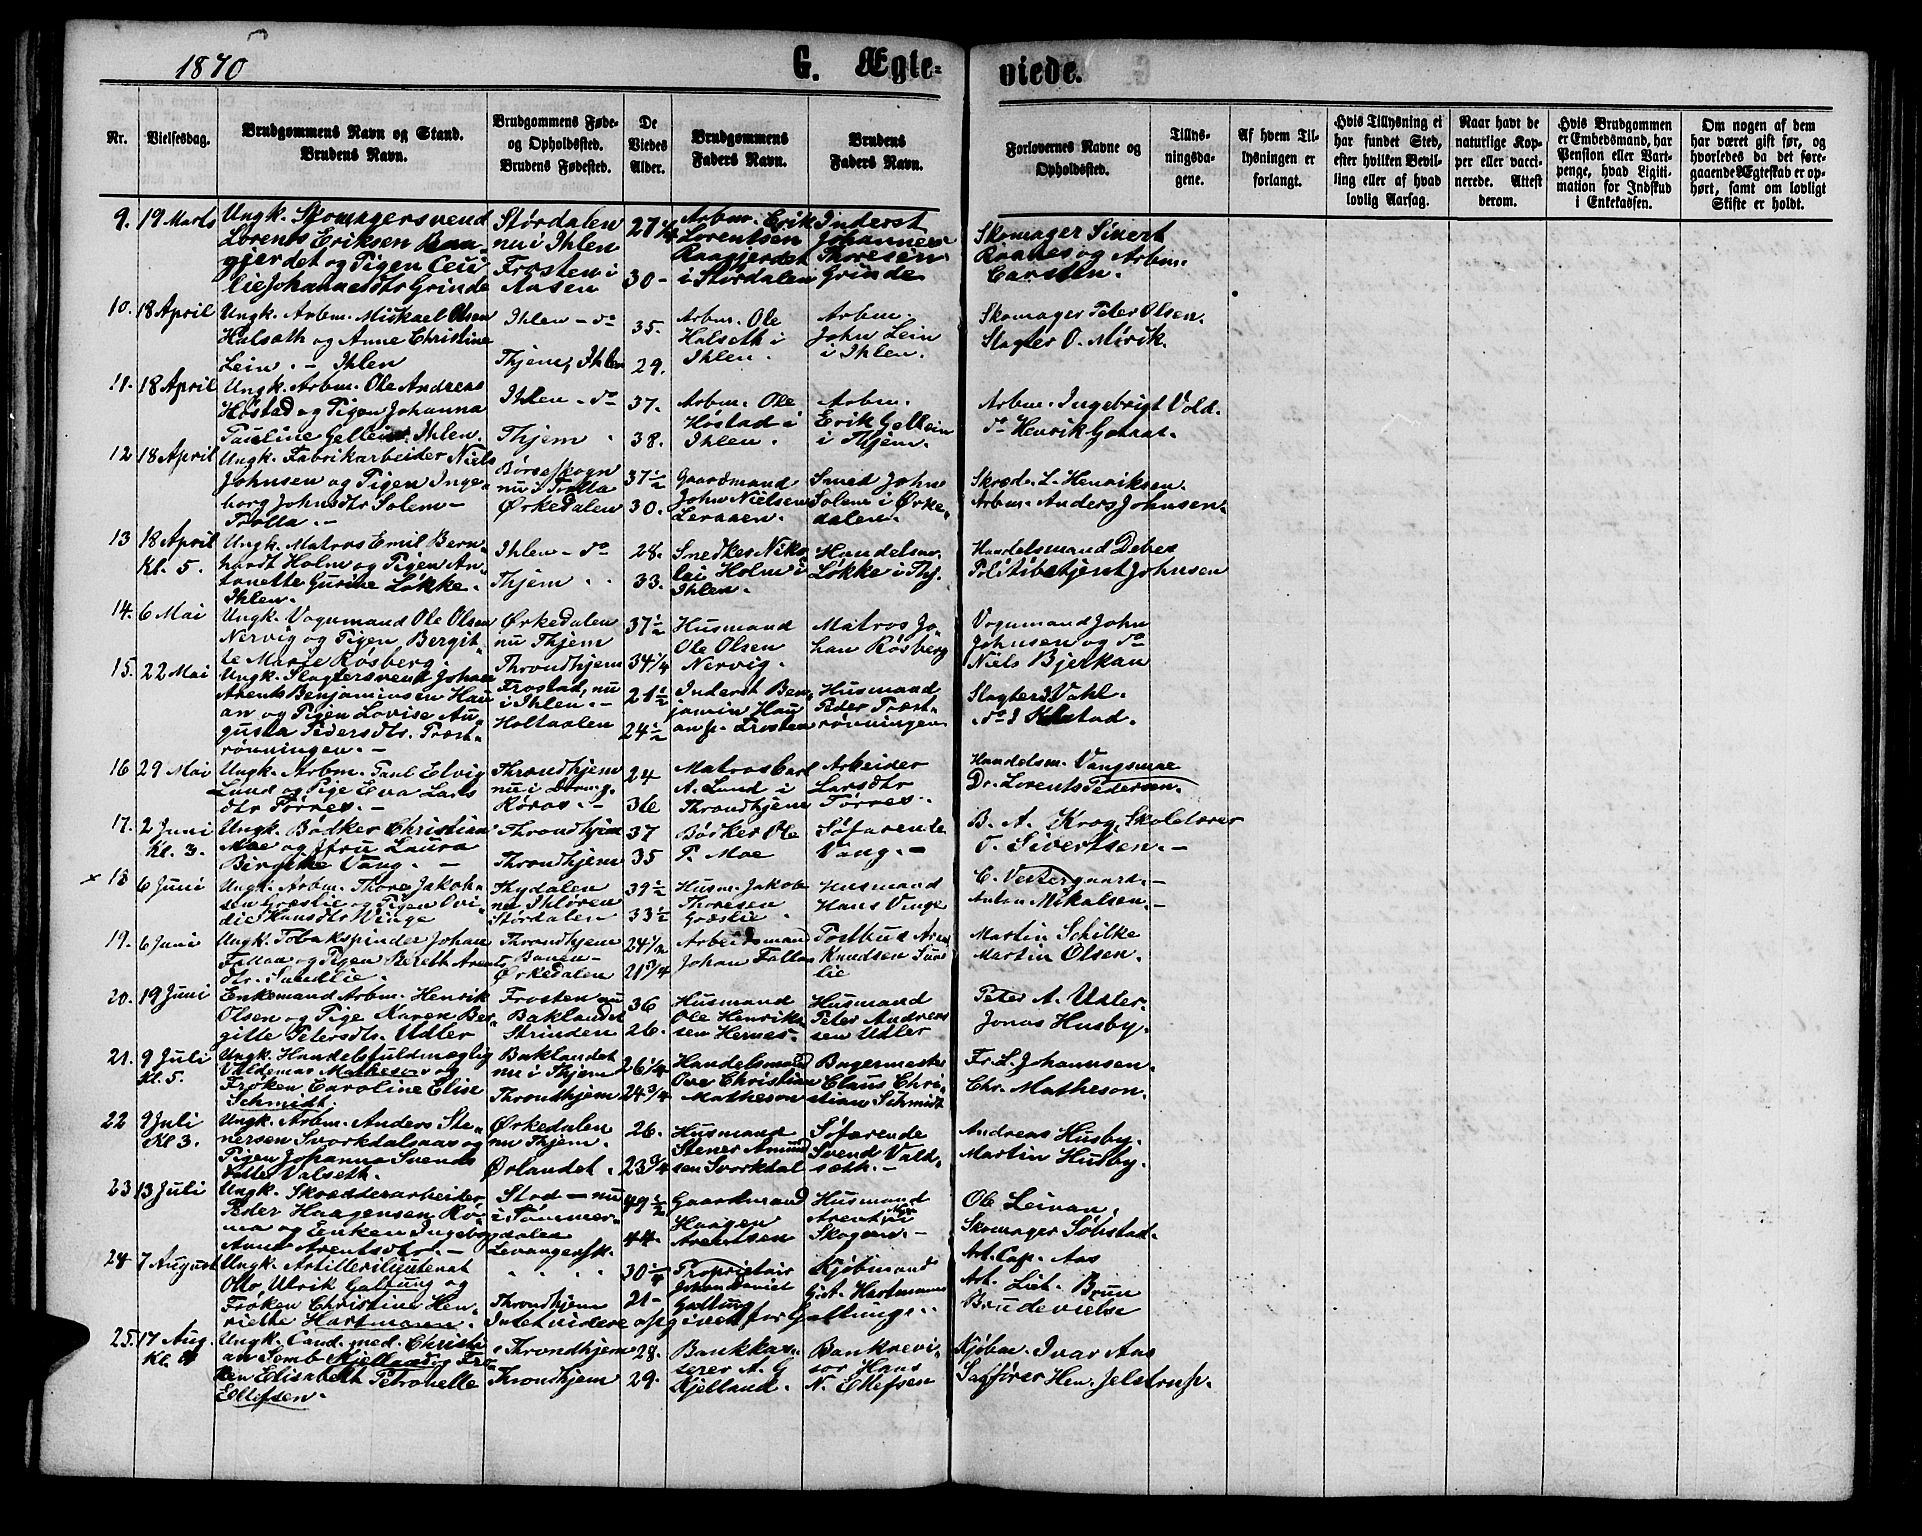 1870
G. Ægteviede.
Nr.
Vielsesdag.
Brudgommens Navn og Stand.
Brudens Navn.
Brudgommens Føde-
og Opholdssted.
Brudens Fødested.
De
Viedes
Alder.
Brudgommens
Faders Navn.
Brudens
Faders Navn.
Forlovernes Navne og
Opholdssted.
Tillys-
ningsda-
gene.
Af hvem Til-
lysningen er
forlangt.
Hvis Tillysning ei
har fundet Sted,
efter hvilken Bevil-
ling eller af hvad
lovlig Aarsag.
Naar havt de
naturlige Kop-
per eller vacci-
nerede. Attest
derom.
Hvis Brudgommen
er Embedsmand, har
Pension eller Vart-
penge, hvad Ligiti-
mation for Indskud
i Enkekassen.
Om nogen af dem
har været gift før, og
hvorledes da det fore-
gaaende Ægteskab er op-
hørt, samt om lovligt
Skifte er holdt.
9. 19 Marts
Ungk. Skomagersvend
Lorents Eriksen Raa-
gjerdet og Pigen Ceci
lie Johannesdtr Grinde
Størdalen
nu i Ihlen
Frosten i
Aasen
27 1/4
30-
Arbm. Erik
Lorentsen
Raagjerdet
i Stördalen
Inderst
Johannes
Thoresen
Grinde
Skomager Sivert
Raanes og Arbm.
Carsten.
10. 18 April
Ungk. Arbm. Mickael Olsen
Halseth og Anne Christine
Lein. - Ihlen
Ihlen - do
Thjem, Ihlen
35.
29.
Arbm. Ole
Halseth i
Ihlen.
Arbm.
John Lein
i Ihlen.
Skomager Peter Olsen.
Slagter O. Mörik.
11. 18 April
Ungk. Arbm. Ole Andreas
Høstad og Pigen Johanna
Pauline Ihlen.
Ihlen - do
Thjem
37.
38.
Arbm. Ole
Høstad i
Ihlen.
Arbm.
Erik
i Thjem.
Arbm. Ingebrigt Vold.
do Henrik
12 18 April
Ungk. Fabrikarbeider Niels
Johnsen og Pigen Inge-
borg Johnsdtr Solem -
Trolla. -
Børseskogn
nu i Trolla
Ørkedalen
37 1/2
30.
Gaardmand
John Nielsen
Leraaen.
Smed John
Solem i Ørke-
dalen.
Skræd. L. Henriksen.
Arbm. Anders Johnsen.
13 18 April
Kl. 5.
Ungk. Matros Emil Bern-
hardt Holm og Pigen An-
tonette Gurine Løkke.
Ihlen.
Ihlen - do
Thjem
28.
33.
Snedker Niko-
lai Holm i
Ihlen.
Handelsm.
Løkke i Thj.
Handelsmand Debes
Politibetjent Johnsen
14. 6 Mai
Ungk. Vognmand Ole Olsen
Nervig og Pigen Bergit-
te Marie Røsberg.
Ørkedalen
nu Thjem
Throndhjem
37 1/2
34 1/4
Husmand
Ole Olsen
Nervig.
Matros Jo-
han Røsberg
Vognmand John
Johnsen og do
Niels Bjerkan
15. 22 Mai
Ungk. Slagtersvend Johan
Arent Benjaminsen Hau-
an og Pigen Lovise Au-
gusta Pedersdtr. Præst-
rønningen. -
Frostad, nu
i Ihlen. -
Holtaalen
21 1/2
24 1/2
Inderst Ben-
jamin Hau
an p. Frosten
Husmand
Peder Præst-
rønningen
Slagter Vahl.
do
16 29 Mai
Ungk. Arbm. Paul Elvig
Lund og Pige Eva Lars
dtr Tørres. -
Throndhjem
nu i
Røros. -
24
36
Matros Carl
A. Lund i
Throndhjem
Arbeider
Lars
Tørres.
Handelsm. Vangsmoe
Dr. Lorents Pedersen.
17. 2 Juni
Kl. 3.
Ungk. Bødker Christian
Moe og Jfru Laura
Birgitte Vang. -
Throndhjem
Throndhjem
37
35
Bødker Ole
P. Moe
Søfarende
Vang. -
B. A. Krog, Skolelærer
T. Sivertsen. -
× 18 6 Juni
Ungk. Arbm. Thore Jakob-
sen Græslie og Pigen Ovi-
die Hansdtr Winge
Thydalen
nu
Størdalen
39 1/2
33 1/2
Husm. Jakob
Thoresen
Græslie.
Husmand
Hans Vinge
C. Vestergaard. -
Anton Mikalsen. -
19. 6 Juni
Ungk. Tobakspinder Johan
Fallan og Pigen Bereth Arent
dtr. Sundlie.
Throndhjem
Ørkedalen
24 1/2
21 3/4
Arbeidsmand
Johan Fallan
Postbud Arent
Knudsen Sund
lie
Martin Schilke
Martin Olsen.
20. 19 Juni
Enkemand Arbm. Henrik
Olsen og Pige Karen Ber-
gitte Petersdtr. Udler
Frosten nu
Baklandet
Strinden
36
26.
Husmand
Ole Henrik-
sen Hernes.
Husmand
Peter Andrea
sen Udler
Peter A. Udler.
Jonas Husby.
21. 9 Juli
Kl. 5.
Ungk. Handelsfuldmægtig
Valdemar Matheson og
Frøken Caroline Elise
Schmidt.
Baklandet
nu i Thjem
Throndhjem
26 1/4
24 3/4
Handelsmand
Ove Christian
Matheson
Bagermester
Claus Chri-
stian Schmidt
Fr. L. Johannsen.
Chr. Matheson.
22 9 Juli
Kl 3.
Ungk. Arbm. Anders Ste-
nersen Svorkdalsaas og
Pigen Johanna Svends
datter Valseth.
Ørkedalen
nu Thjem.
Ørlandet.
26.
23 3/4
Husmand
Stener Amund
sen Svorkdal
Søfarende
Svend Vald-
sæth. -
Andreas Husby.
Martin Husby.
23. 13 Juli
Ungk. Skrædderarbeider
Peder Haagensen Rø-
ma og Enken Ingeborg
Anne Arentsdtr. -
Stod - nu
i Sømmer-
dalen
Levanger
49 1/2
44.
Gaardmand
Haagen
Arentsen
Husmand
Arent
Skogen. -
Ole Leinan,
Skomager Søbstad.
24 7 August
Ungk. Artillerilieutenat
Otto Ulrik Galtung og
Frøken Christine Hen-
riette Hartmann.
Throndhjem
30 1/4
21 -
Proprietair
Johan Daniel
Galtung
Kjøbmand
G. A. Hartmann
Intet videre opgivet for Galtung. -
Art. Cap. Aas
Art. Liet. Brun
Brudevielse
25. 17 Aug.
Kl.
Ungk. Cand. med. Christi-
an Lemb Kjelland og Frø-
ken Elisabeth Petronelle
Ellefsen.
Throndhjem
Throndhjem
28.
29.
Bankkas-
serer A. G
Kjelland.
Bankrevi-
sor Hans
N. Ellefsen
Kjøbm. Ivar Aas
Sagfører Hen. Jelstrup.